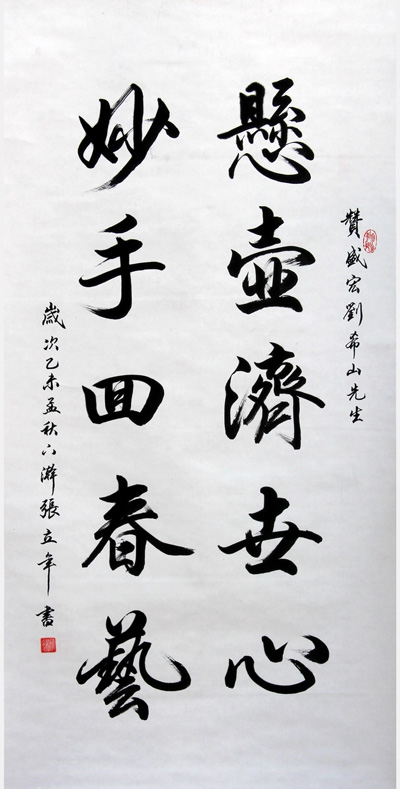 贊盛宏劉希山先生
懸壺濟世心
妙手回春藝
歲次乙未孟秋八澣張立年書